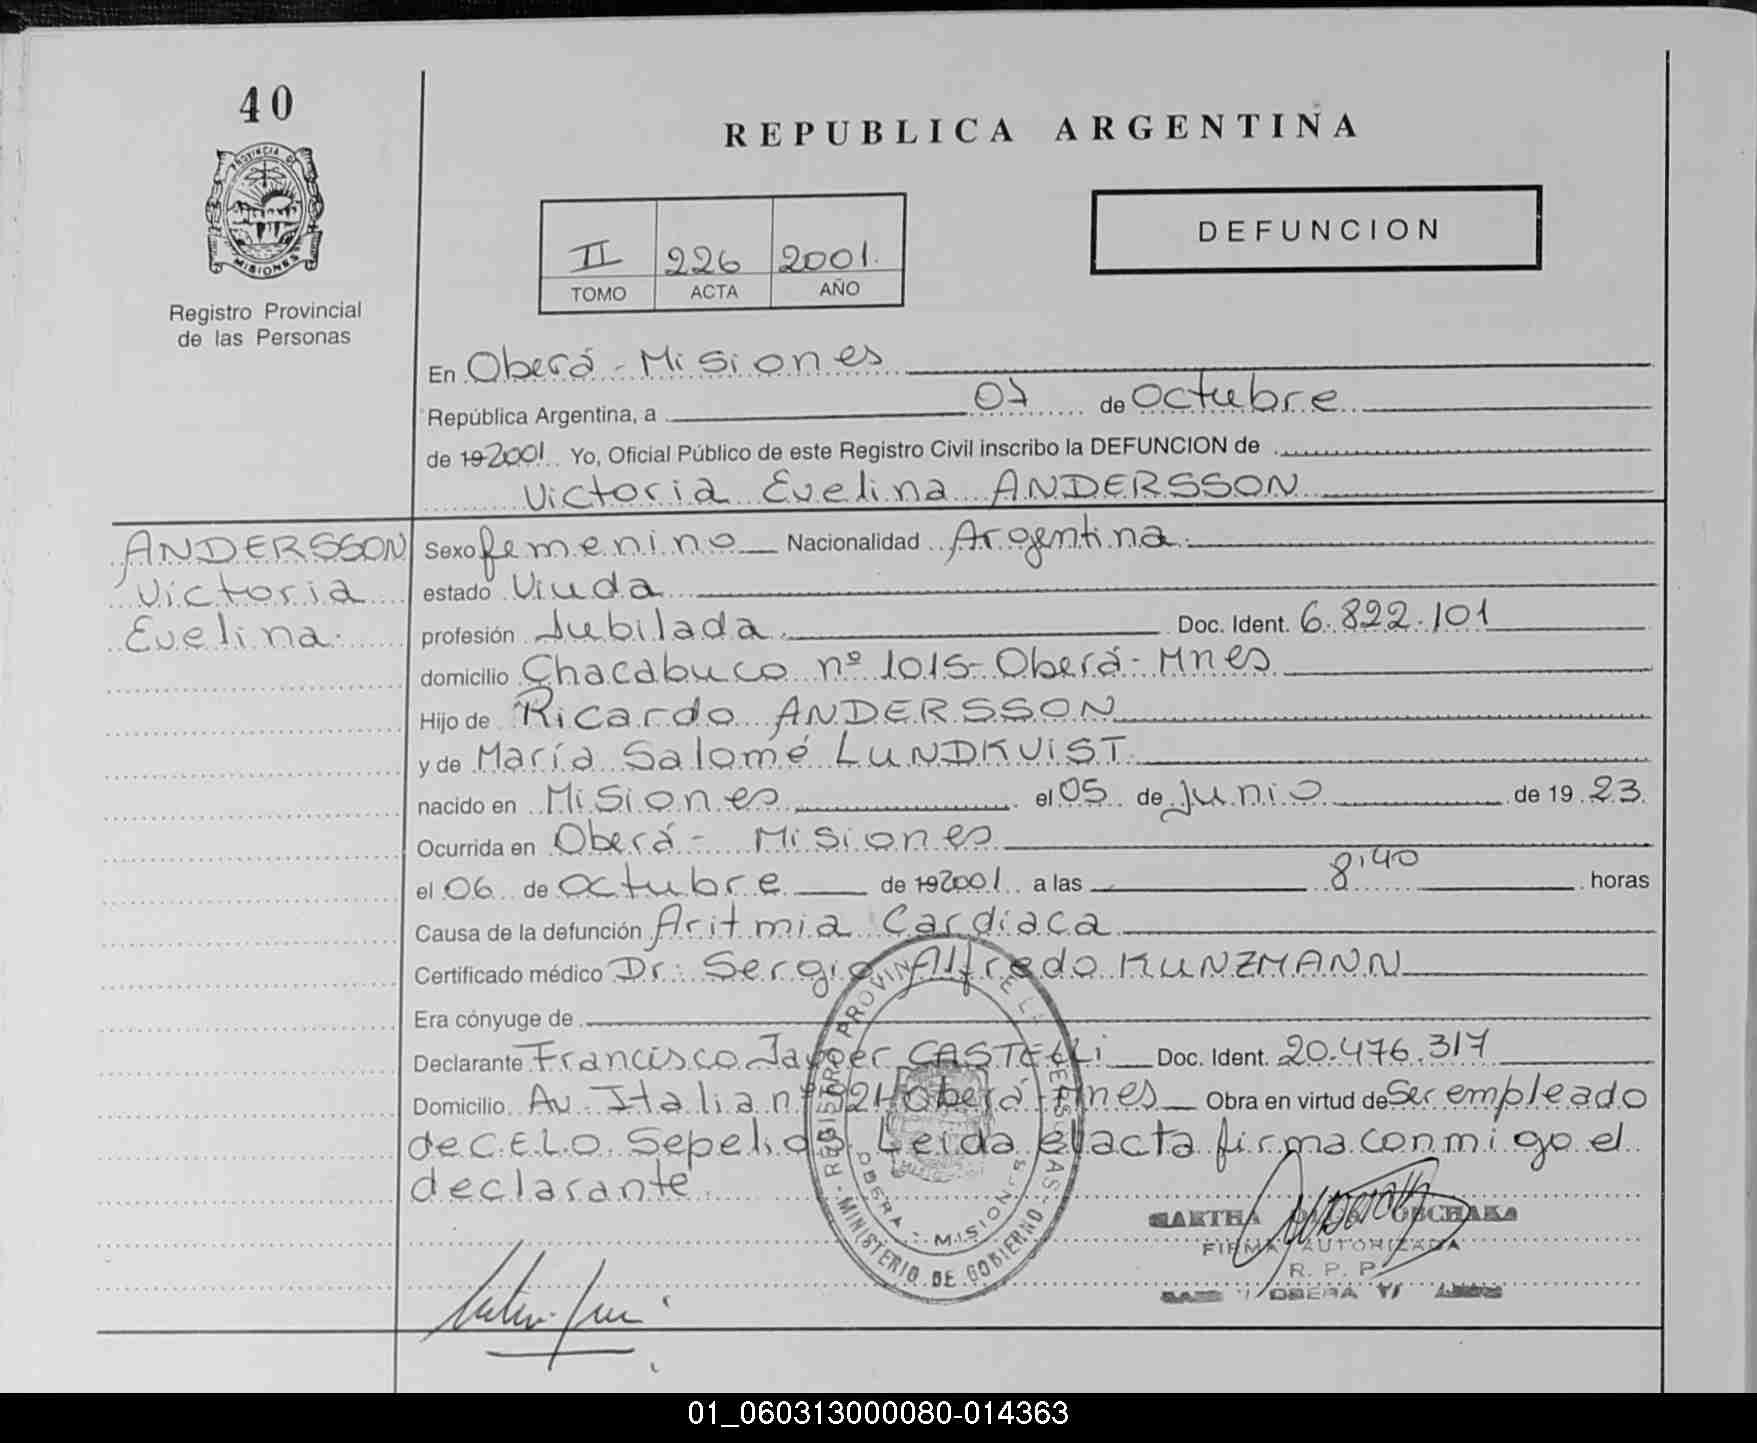 40
REPUBLICA ARGENTINA
PROVINCIA DE
MISIONES
Registro Provincial
de las Personas
II 226 2001.
TOMO ACTA AÑO
DEFUNCION
En Oberá - Misiones
República Argentina, a 07 de Octubre
de 19 2001 Yo, Oficial Público de este Registro Civil inscribo la DEFUNCION de
Victoria Evelina ANDERSSON
ANDERSSON
Victoria
Evelina.
Sexo femenino Nacionalidad Argentina.
estado Viuda
profesión Jubilada. Doc. Ident. 6.822.101
domicilio Chacabuco nº 1015 - Oberá - Mnes
Hijo de Ricardo ANDERSSON
y de María Salomé LUNDKVIST.
nacido en Misiones el 05 de Junio de 19 23.
Ocurrida en Oberá - Misiones
el 06 de Octubre de 19 2001 a las 8,40 horas
Causa de la defunción Aritmia Cardíaca
Certificado médico Dr: Sergio Alfredo KUNZMANN
Era cónyuge de
Declarante Francisco Javier CASTELLI Doc. Ident. 20.476.317
Domicilio Av. Italia nº Oberá - Mnes Obra en virtud de Ser empleado
de C.E.L.O. Sepelios. Leida el acta firma conmigo el
declarante
REGISTRO PROVINCIAL DE LAS PERSONAS
MINISTERIO DE GOBIERNO
OBERA - MISIONES
MARTHA
FIRMA AUTORIZADA
R. P. P.
OBERA
01_060313000080-014363